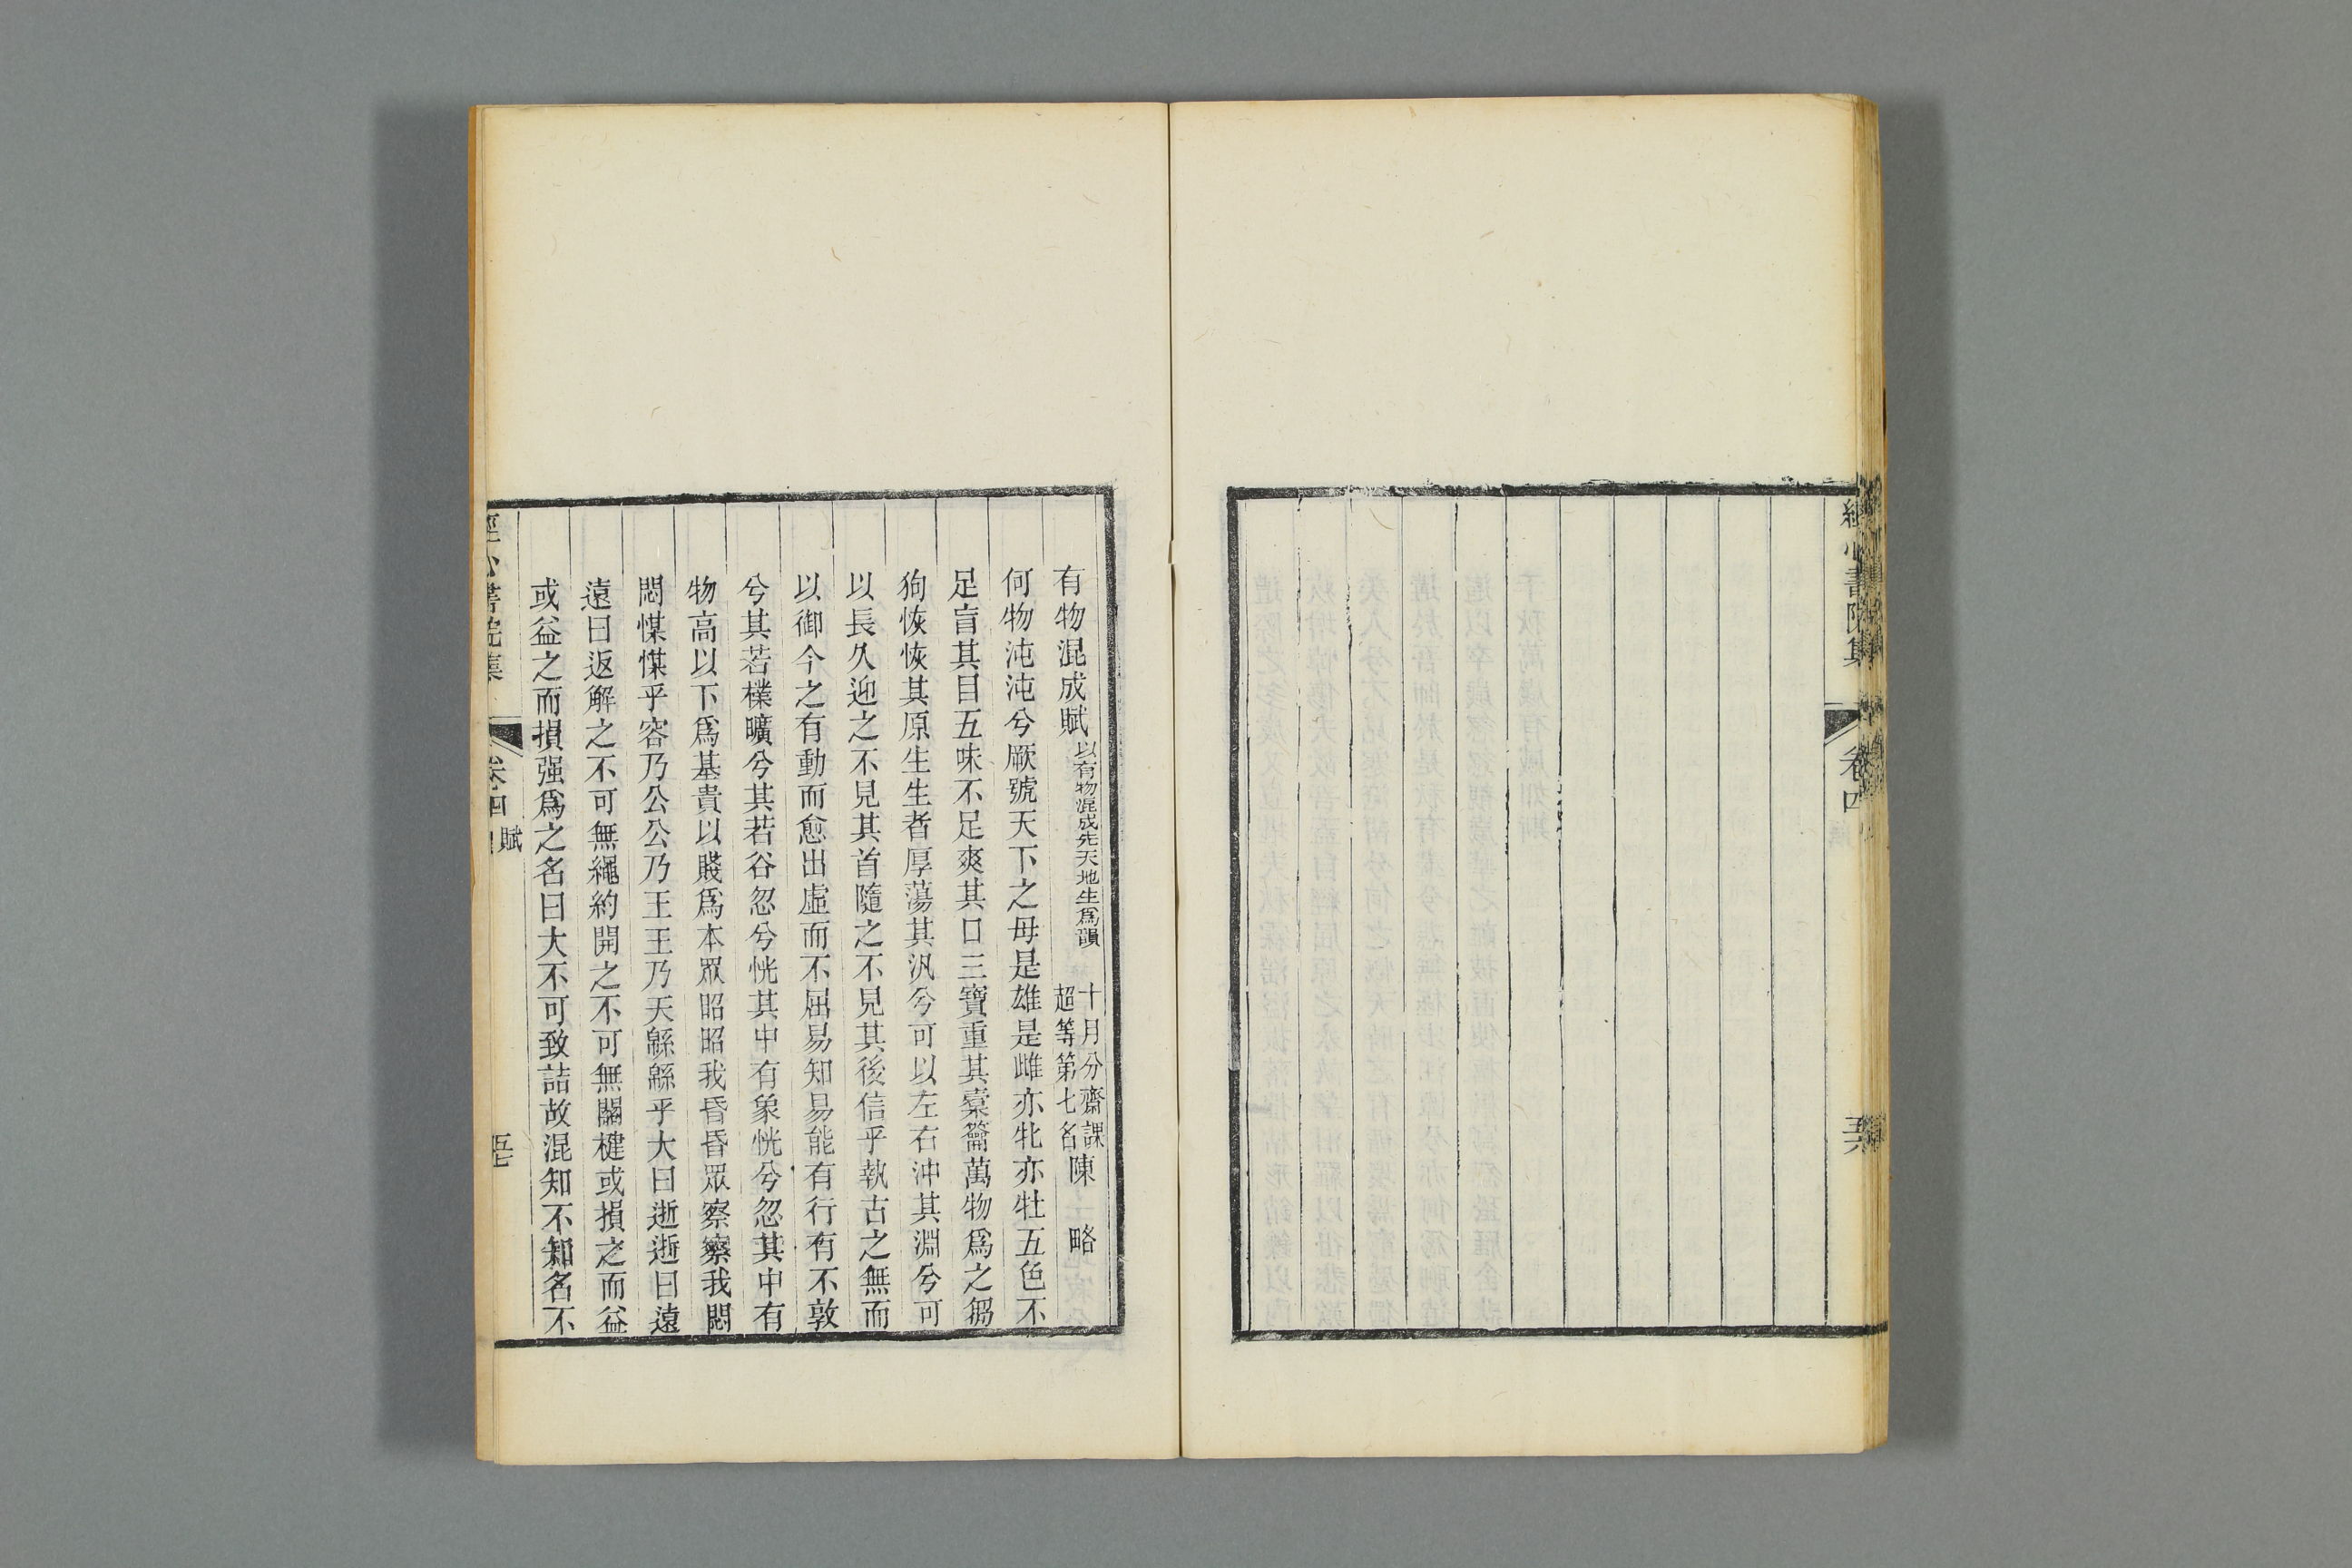 經心書院集
卷四
有物混成賦以有物混成先天地生爲韻 十月分齋課超等第七名陳 略
何物沌沌兮厥號天下之母是雄是雌亦牝亦牡五色不
足盲其目五味不足爽其口三寶重其橐籥萬物爲之芻
狗恢恢其原生生者厚蕩其汎兮可以左右沖其淵兮可
以長久迎之不見其首隨之不見其後信乎執古之無而
以御今之有動而愈出虛而不屈易知易能有行有不敦
兮其若樸曠兮其若谷忽兮恍其中有象恍兮忽其中有
物高以下爲基貴以賤爲本眾昭昭我昏昏眾察察我悶
悶惵惵乎容乃公公乃王王乃天緜緜乎大曰逝逝曰遠
遠曰返解之不可無繩約開之不可無關楗或損之而益
或益之而損强爲之名曰大不可致詰故混知不知名不
經心書院集
卷四
賦